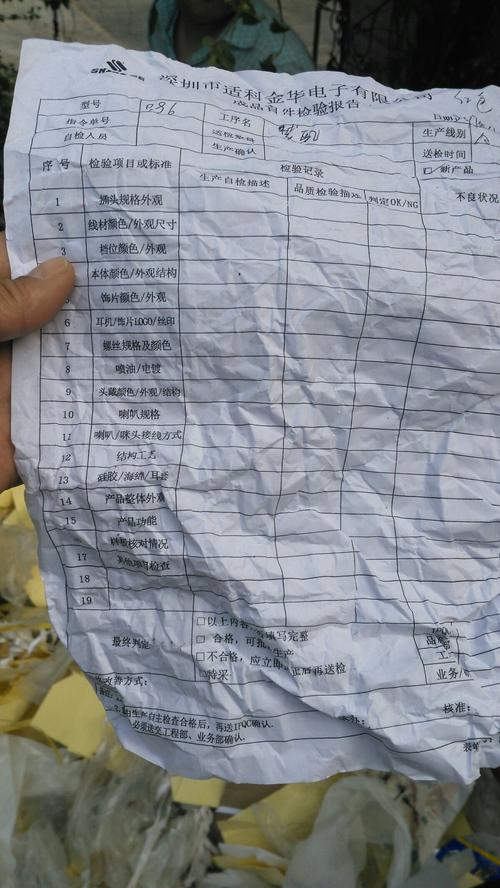 深圳市适科金华电子有限公司
成品首件检验报告
型号 036 工序名
指令单号 送检数量 生产线别
自检人员 生产确认 送检时间
序号 检验项目或标准 检验记录 □/新产品
生产自检描述 品质检验描述 判定OK/NG 不良状况
1 插头规格外观
2 线材颜色/外观尺寸
3 档位颜色/外观
本体颜色/外观结构
5 饰片颜色/外观
6 耳机/饰片LOGO/丝印
7 螺丝规格及颜色
8 喷油/电镀
9 头戴颜色/外观/结构
10 喇叭规格
11 喇叭/咪头接线方式
12 结构工艺
13 硅胶/海绵/耳套
14 产品整体外观
15 产品功能
核对情况
17 其他项目检查
18
19
最终判定 □以上内容 填写完整
□ 合格,可批 生产
□不合格,应立即 正后再送检
□特采
业务/
改善方式:
核准:
由生产自主检查合格后,再送IPQC确认.
必须送交工程部、业务部确认.